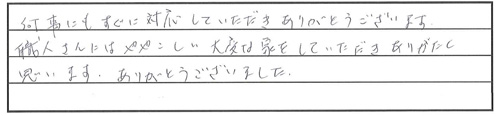 何事にもすぐに対応していただきありがとうございます.
職人さんにはややこしい大変な家をしていただきありがたく
思います. ありがとうございました.